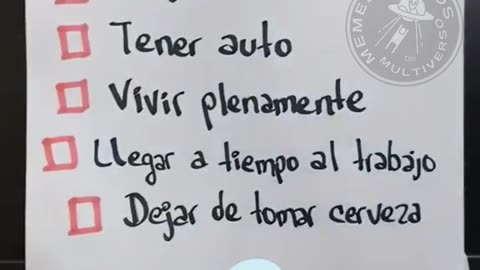 Tener auto
Vivir plenamente
Llegar a tiempo al trabajo
Dejar de tomar cerveza
MULTIVERSO